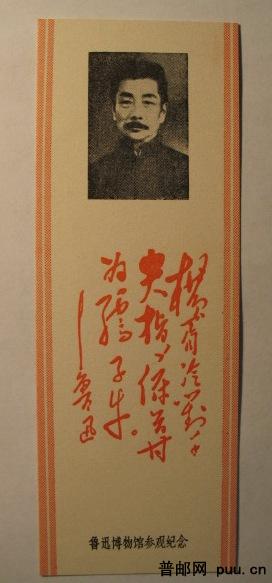 横眉冷对千
夫指，俯首甘
为孺子牛。
—鲁迅
鲁迅博物馆参观纪念
普邮网 puu.cn